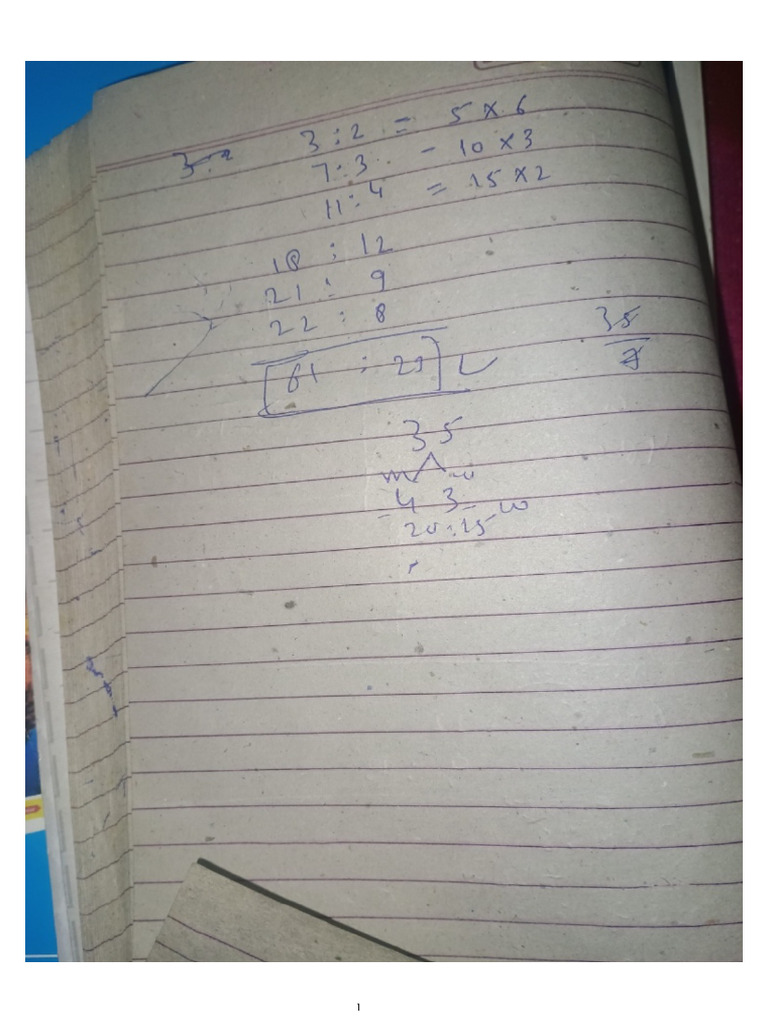 3:2 = 5×6
7:3 - 10×3
11:4 = 15×2
18 : 12
21 : 9
22 : 8
61 : 29
35
35
m w
4 3
20:15 w
1